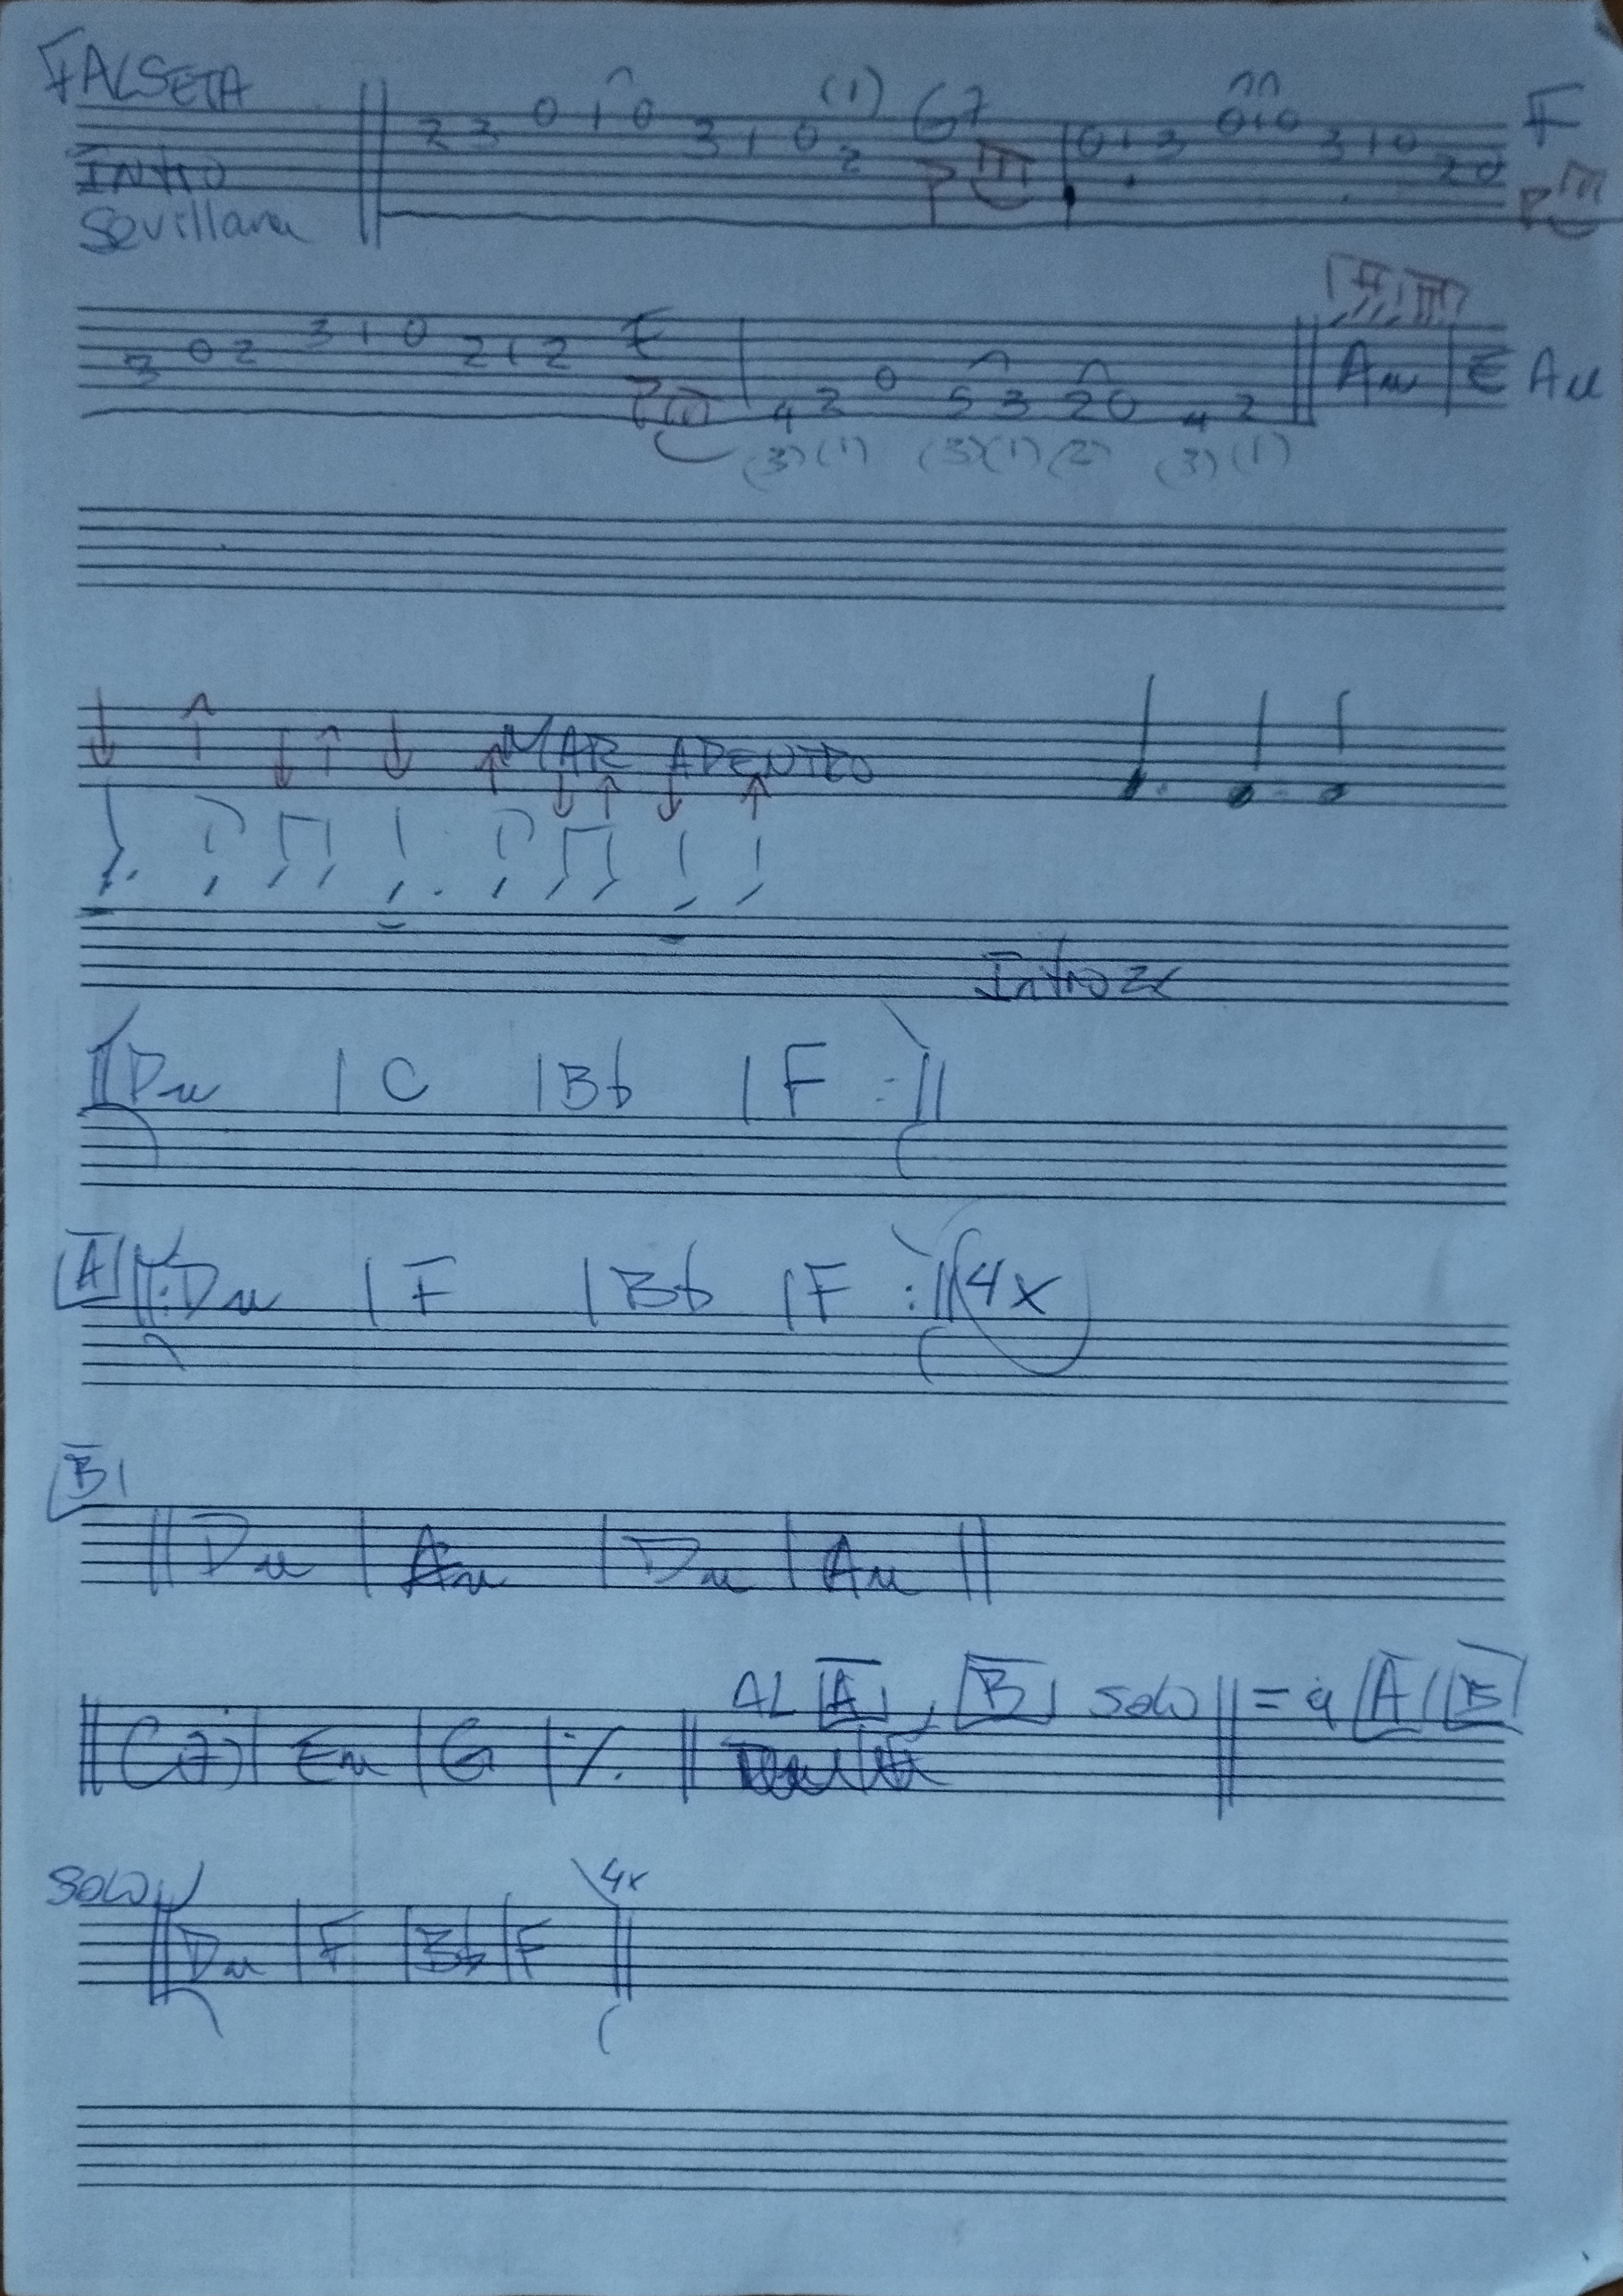 FALSETA
Intro
Sevillana
2 3 0 1 0 3 1 0 (1) 2 G7 P 0 1 3 0 1 0 3 1 0 2 0 F P
3 0 2 3 1 0 2 1 2 E P 4 2 0 5 3 2 0 4 2 Am E Am
(3) (1) (3) (1) (2) (3) (1)
MAR ADENTRO
Intro 2x
Dm | C | Bb | F :||
A ||: Dm | F | Bb | F :|| 4x
B
|| Dm | Am | Dm | Am ||
AL A, B solo || = a A B
|| C(7) | Em | G | ٪ ||
Solo 4x
|| Dm | F | Bb | F ||